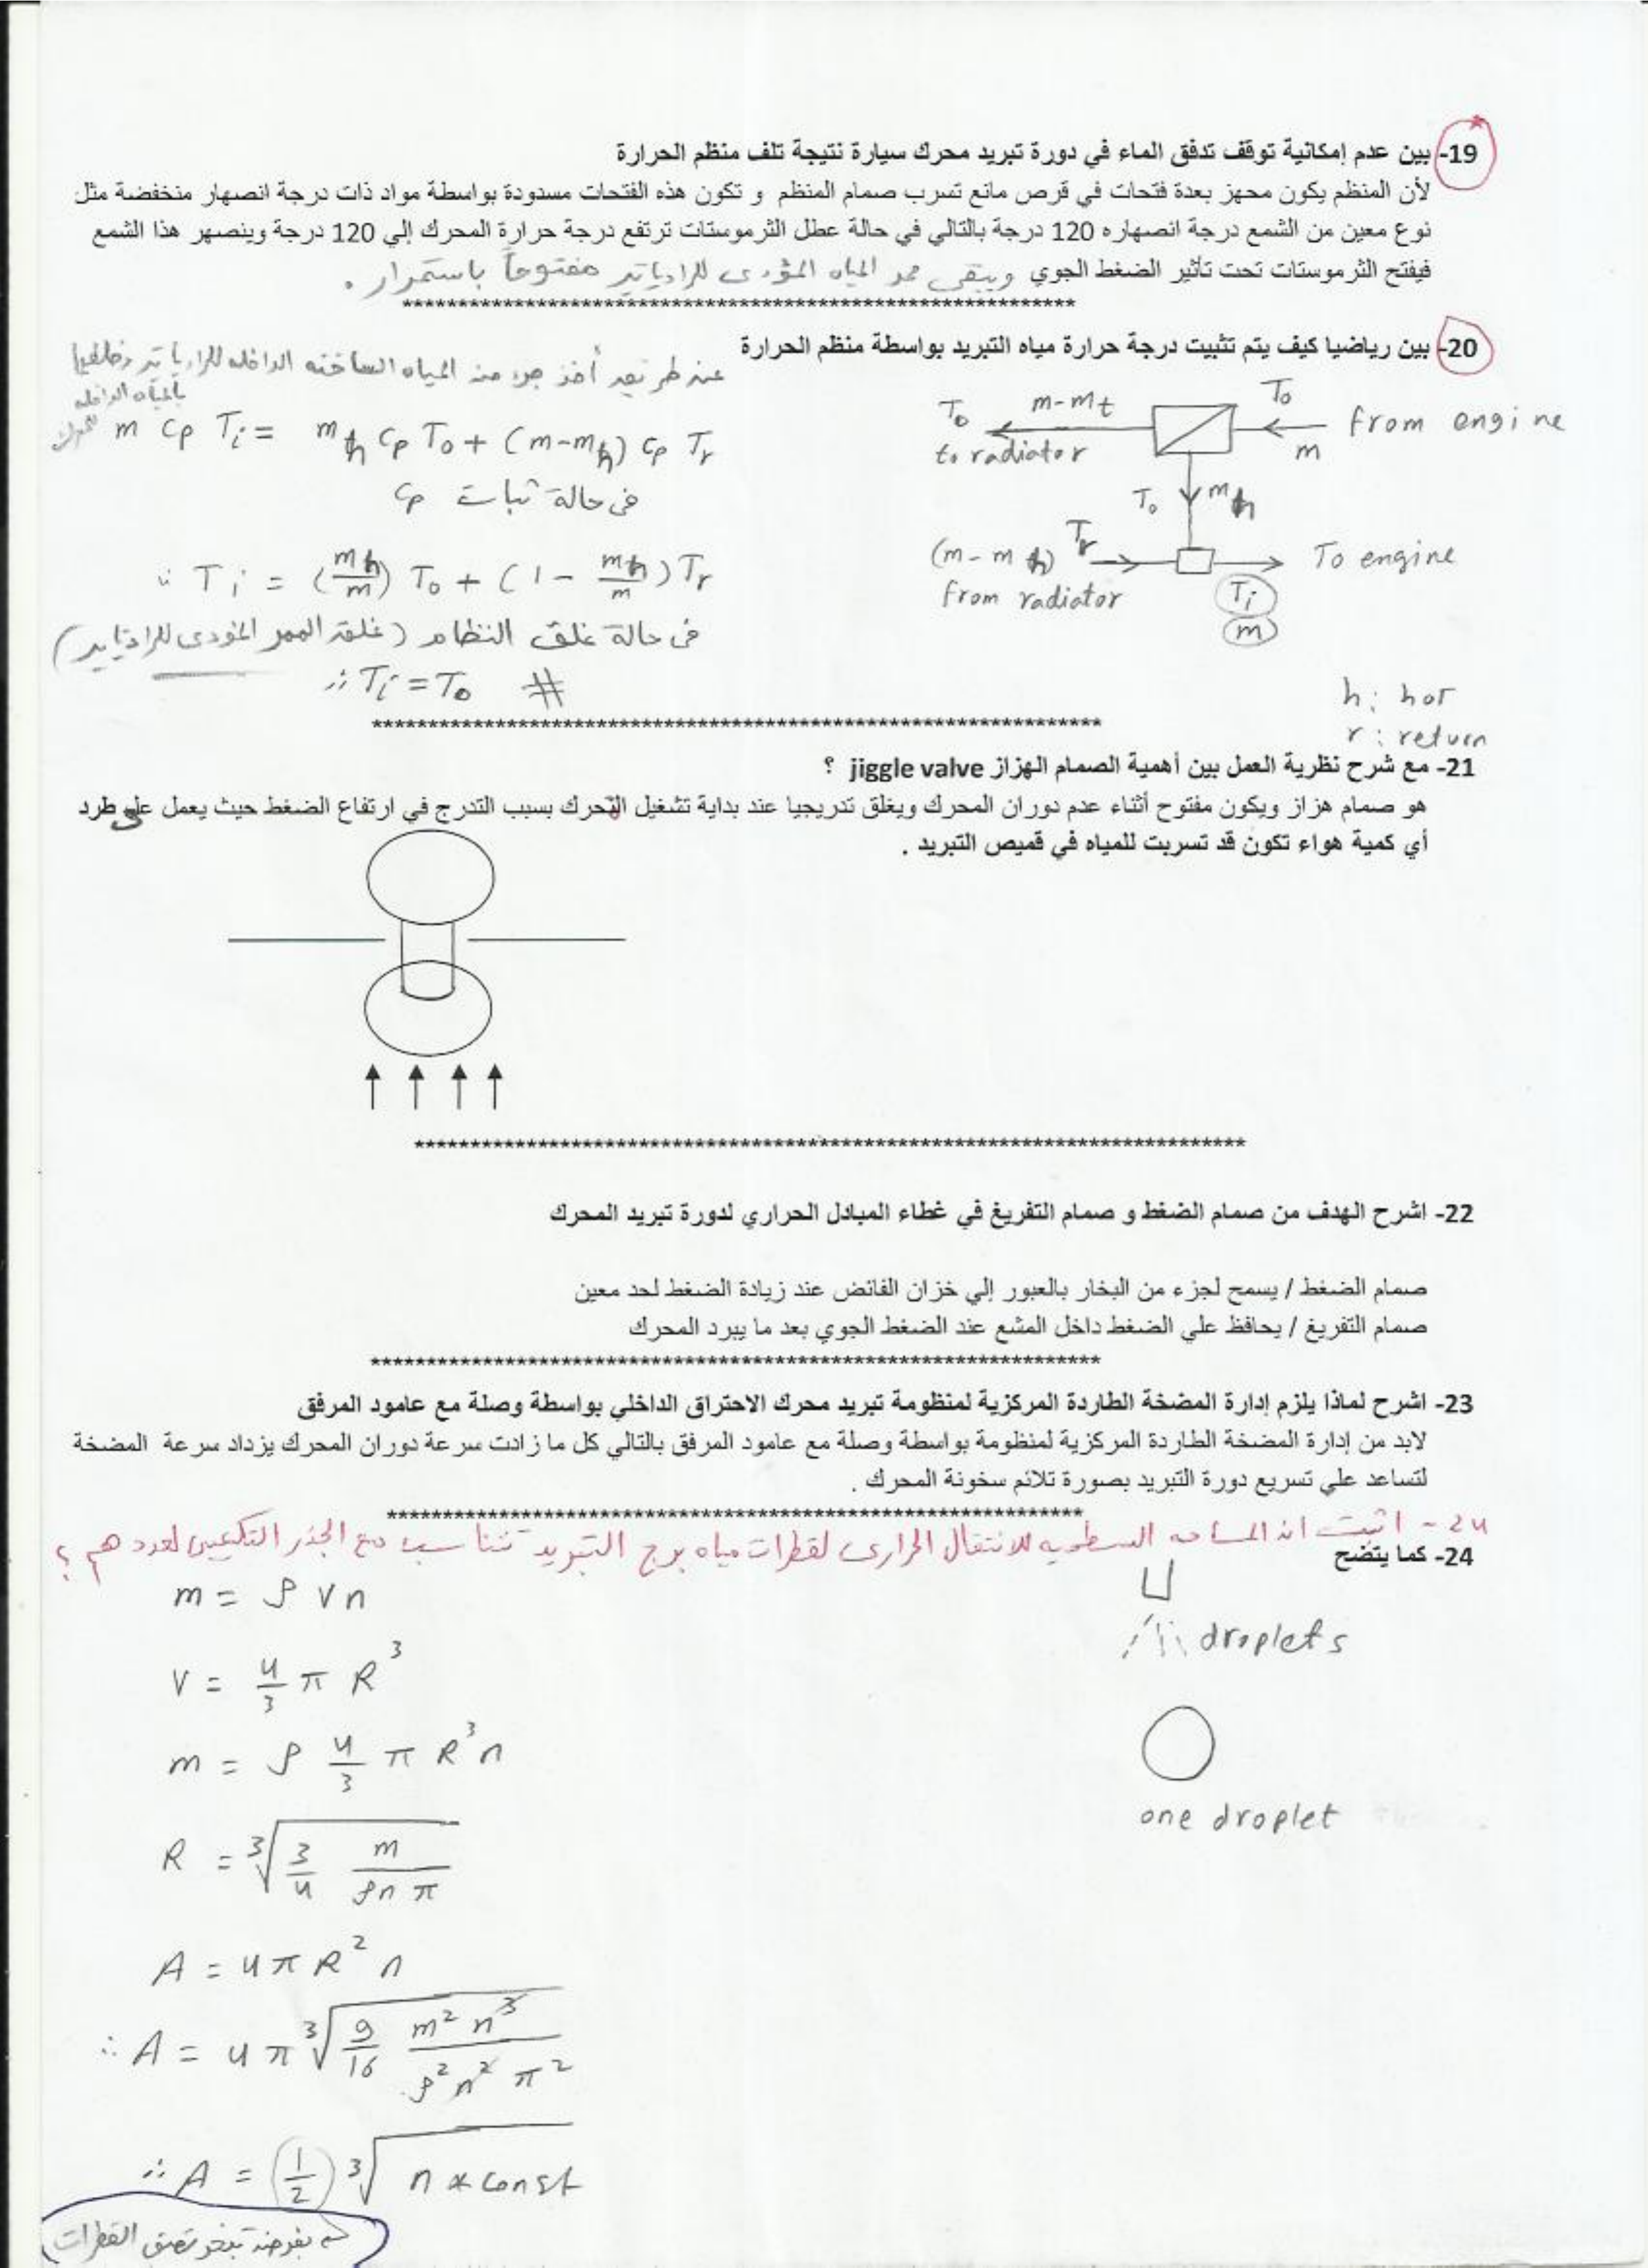 19- بين عدم إمكانية توقف تدفق الماء في دورة تبريد محرك سيارة نتيجة تلف منظم الحرارة
لأن المنظم يكون مجهز بعدة فتحات في قرص مانع تسرب صمام المنظم و تكون هذه الفتحات مسدودة بواسطة مواد ذات درجة انصهار منخفضة مثل
نوع معين من الشمع درجة انصهاره 120 درجة بالتالي في حالة عطل الثرموستات ترتفع درجة حرارة المحرك إلي 120 درجة وينصهر هذا الشمع
فيفتح الثرموستات تحت تأثير الضغط الجوي ويبقى ممر المياه المؤدى للرادياتير مفتوحاً باستمرار .
****************************************************************
20- بين رياضيا كيف يتم تثبيت درجة حرارة مياه التبريد بواسطة منظم الحرارة
عن طريق أخذ جزء من المياه الساخنه الداخله للرادياتير وخلطها
بالمياه الداخله
للمحرك
m cp Ti = mh cp To + (m-mh) cp Tr
فى حالة ثبات cp
∴ Ti = (mh/m) To + (1 - mh/m) Tr
فى حالة غلق النظام (غلق الممر المؤدى للرادياتير)
∴ Ti = To #
To m-mt To
from engine
to radiator m
To mh
(m-mh) Tr To engine
from radiator Ti
m
h: hot
r: return
****************************************************************
21- مع شرح نظرية العمل بين أهمية الصمام الهزاز jiggle valve ؟
هو صمام هزاز ويكون مفتوح أثناء عدم دوران المحرك ويغلق تدريجيا عند بداية تشغيل المحرك بسبب التدرج في ارتفاع الضغط حيث يعمل على طرد
أي كمية هواء تكون قد تسربت للمياه في قميص التبريد .
****************************************************************
22- اشرح الهدف من صمام الضغط و صمام التفريغ في غطاء المبادل الحراري لدورة تبريد المحرك
صمام الضغط / يسمح لجزء من البخار بالعبور إلي خزان الفائض عند زيادة الضغط لحد معين
صمام التفريغ / يحافظ علي الضغط داخل المشع عند الضغط الجوي بعد ما يبرد المحرك
****************************************************************
23- اشرح لماذا يلزم إدارة المضخة الطاردة المركزية لمنظومة تبريد محرك الاحتراق الداخلي بواسطة وصلة مع عامود المرفق
لابد من إدارة المضخة الطاردة المركزية لمنظومة بواسطة وصلة مع عامود المرفق بالتالي كل ما زادت سرعة دوران المحرك يزداد سرعة المضخة
لتساعد علي تسريع دورة التبريد بصورة تلائم سخونة المحرك .
****************************************************************
24- اثبت ان المساحه السطحيه للانتقال الحرارى لقطرات مياه برج التبريد تتناسب مع الجذر التكعيبى لعددهم ؟
24- كما يتضح
m = ρ V n
droplets
V = 4/3 π R³
m = ρ 4/3 π R³ n
one droplet
R = ∛(3/4 m/(ρn π))
A = 4π R² n
∴ A = 4π ∛(9/16 m² n³/(ρ² n² π²))
∴ A = (1/2) ∛(n * const